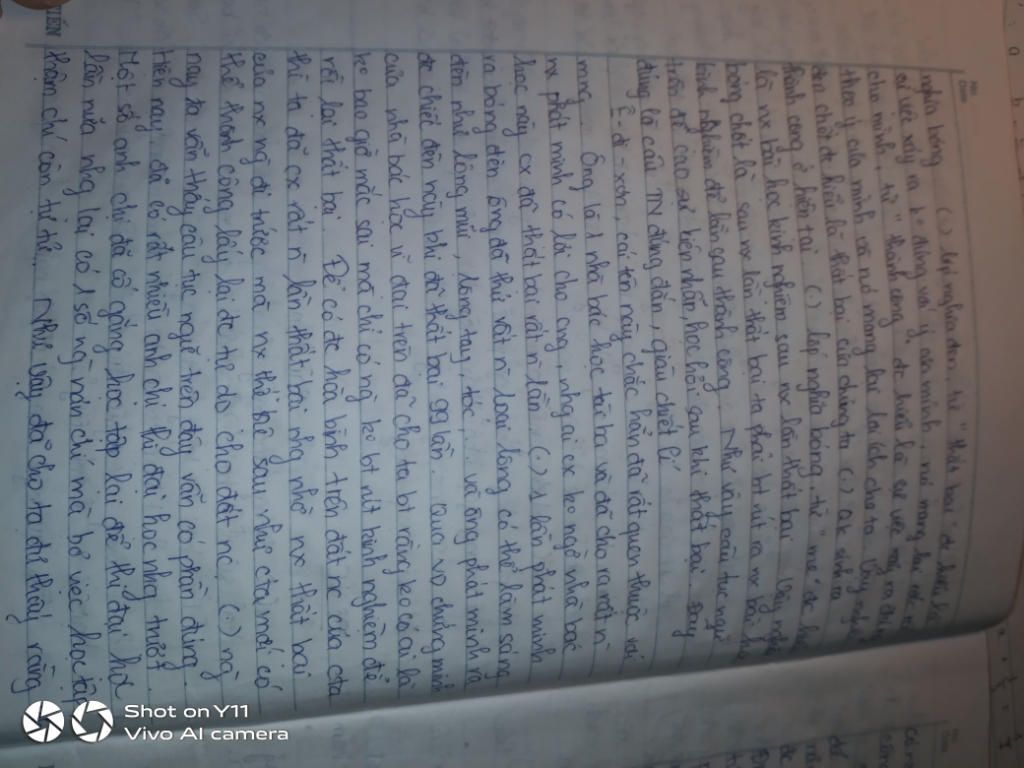 nghĩa bóng (.) lớp nghĩa đen, từ "thất bại" đc hiểu là
sự việc xảy ra k đúng với ý của mình, nó mang lại
cho mình, từ "thành công" đc hiểu là sự việc xảy ra đúng
theo ý của mình và nó mang lại lợi ích cho ta. Vậy nghĩa
đen chốt đc hiểu là thất bại của chúng ta (.) sinh ra
thành công ở hiện tại. (.) lớp nghĩa bóng, từ "mẹ" đc
là nx bài học kinh nghiệm sau nx lần thất bại. Vậy nghĩa
bóng chốt là sau nx lần thất bại ta phải bt rút ra nx bài học
kinh nghiệm để lần sau thành công. Như vậy câu tục ngữ
trên đề cao sự bền nhẫn, học hỏi sau khi thất bại. Đây
đúng là câu TN đúng đắn, giàu chiết lí.
Ê-đi-xơn, cái tên này chắc hẳn đã rất quen thuộc với
mng. Ông là 1 nhà bác học và đã cho ra rất n
nx phát minh có lợi cho cng, nhưg ai cx ko ngờ nhà bác
học này cx đã thất bại rất n lần. (.) 1 lần phát minh
ra bóng đèn ông đã thử rất n loại lông có thể làm sáng
đèn như lông mũi, lông tay, tóc, và ông phát minh ra
đc chiếc đèn này khi đã thất bại 99 lần. Qua vd chứng minh
của nhà bác học vĩ đại trên đã cho ta bt rằng ko có ai là
ko bao giờ mắc sai mà chỉ có ng ko bt rút kinh nghiệm để
rồi lại thất bại. Để có đc hòa bình trên đất nc của cta
thì ta đã cx rất n lần thất bại nhg nhờ nx thất bại
của nx ng đi trước mà nx thế hệ sau như cta mới có
thể thành công lấy lại đc tự do cho đất nc. (.) ng
nay ta vẫn thấy câu tục ngữ trên đây vẫn có phần đúng.
Hiện nay, đã có rất nhiều anh chị thi đại học nhg trượt.
Một số anh chị đã cố gắng học tập lại để thi đại học
lần nữa nhg lại có 1 số ng nản chí mà bỏ việc học tập
thậm chí còn tự tử. Như vậy đã cho ta đc thấy rằng
Shot on Y11
Vivo AI camera